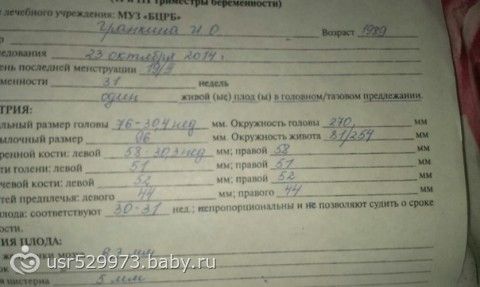 (II и III триместры беременности)
е лечебного учреждения: МУЗ «БЦРБ»
Возраст 1989
едования 23 октября 2014г
ень последней менструации 19/3
менности 31 недель
один живой (ые) плод (ы) в головном/тазовом предлежании.
ТРИЯ:
альный размер головы 76-30,4 нед мм. Окружность головы 270 мм
ылочный размер 96 мм. Окружность живота 81/254 мм
ренной кости: левой 58-30,3 нед мм; правой 58 мм
сти голени: левой 51 мм; правой 51 мм
чевой кости: левой 52 мм; правой 52 мм
тей предплечья: левого 44 мм; правого 44 мм
плода: соответствуют 30-31 нед.; непропорциональны и не позволяют судить о сроке
ности.
ИЯ ПЛОДА:
мм
ок
я цистерна 5 мм
usr529973.baby.ru